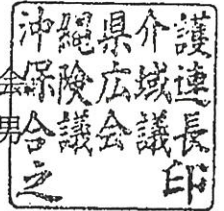 沖縄県介護
保険広域連
合議会議長
之印
会
男